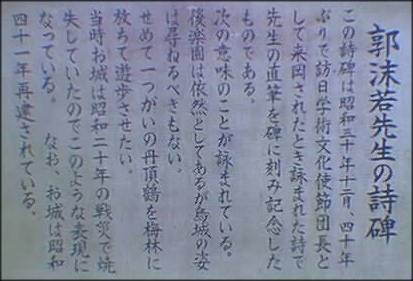 郭沫若先生の詩碑
この詩碑は昭和三十年十二月、四十年
ぶりで訪日学術文化使節団長と
して来岡されたとき詠まれた詩で
先生の直筆を碑に刻み記念した
ものである。
次の意味のことが詠まれている。
後楽園は依然としてあるが烏城の姿
は尋ねるべきもない。
せめて一つがいの丹頂鶴を梅林に
放ちて遊歩させたい。
当時お城は昭和二十年の戦災で焼
失していたのでこのような表現に
なっている。 なお、お城は昭和
四十一年再建されている。